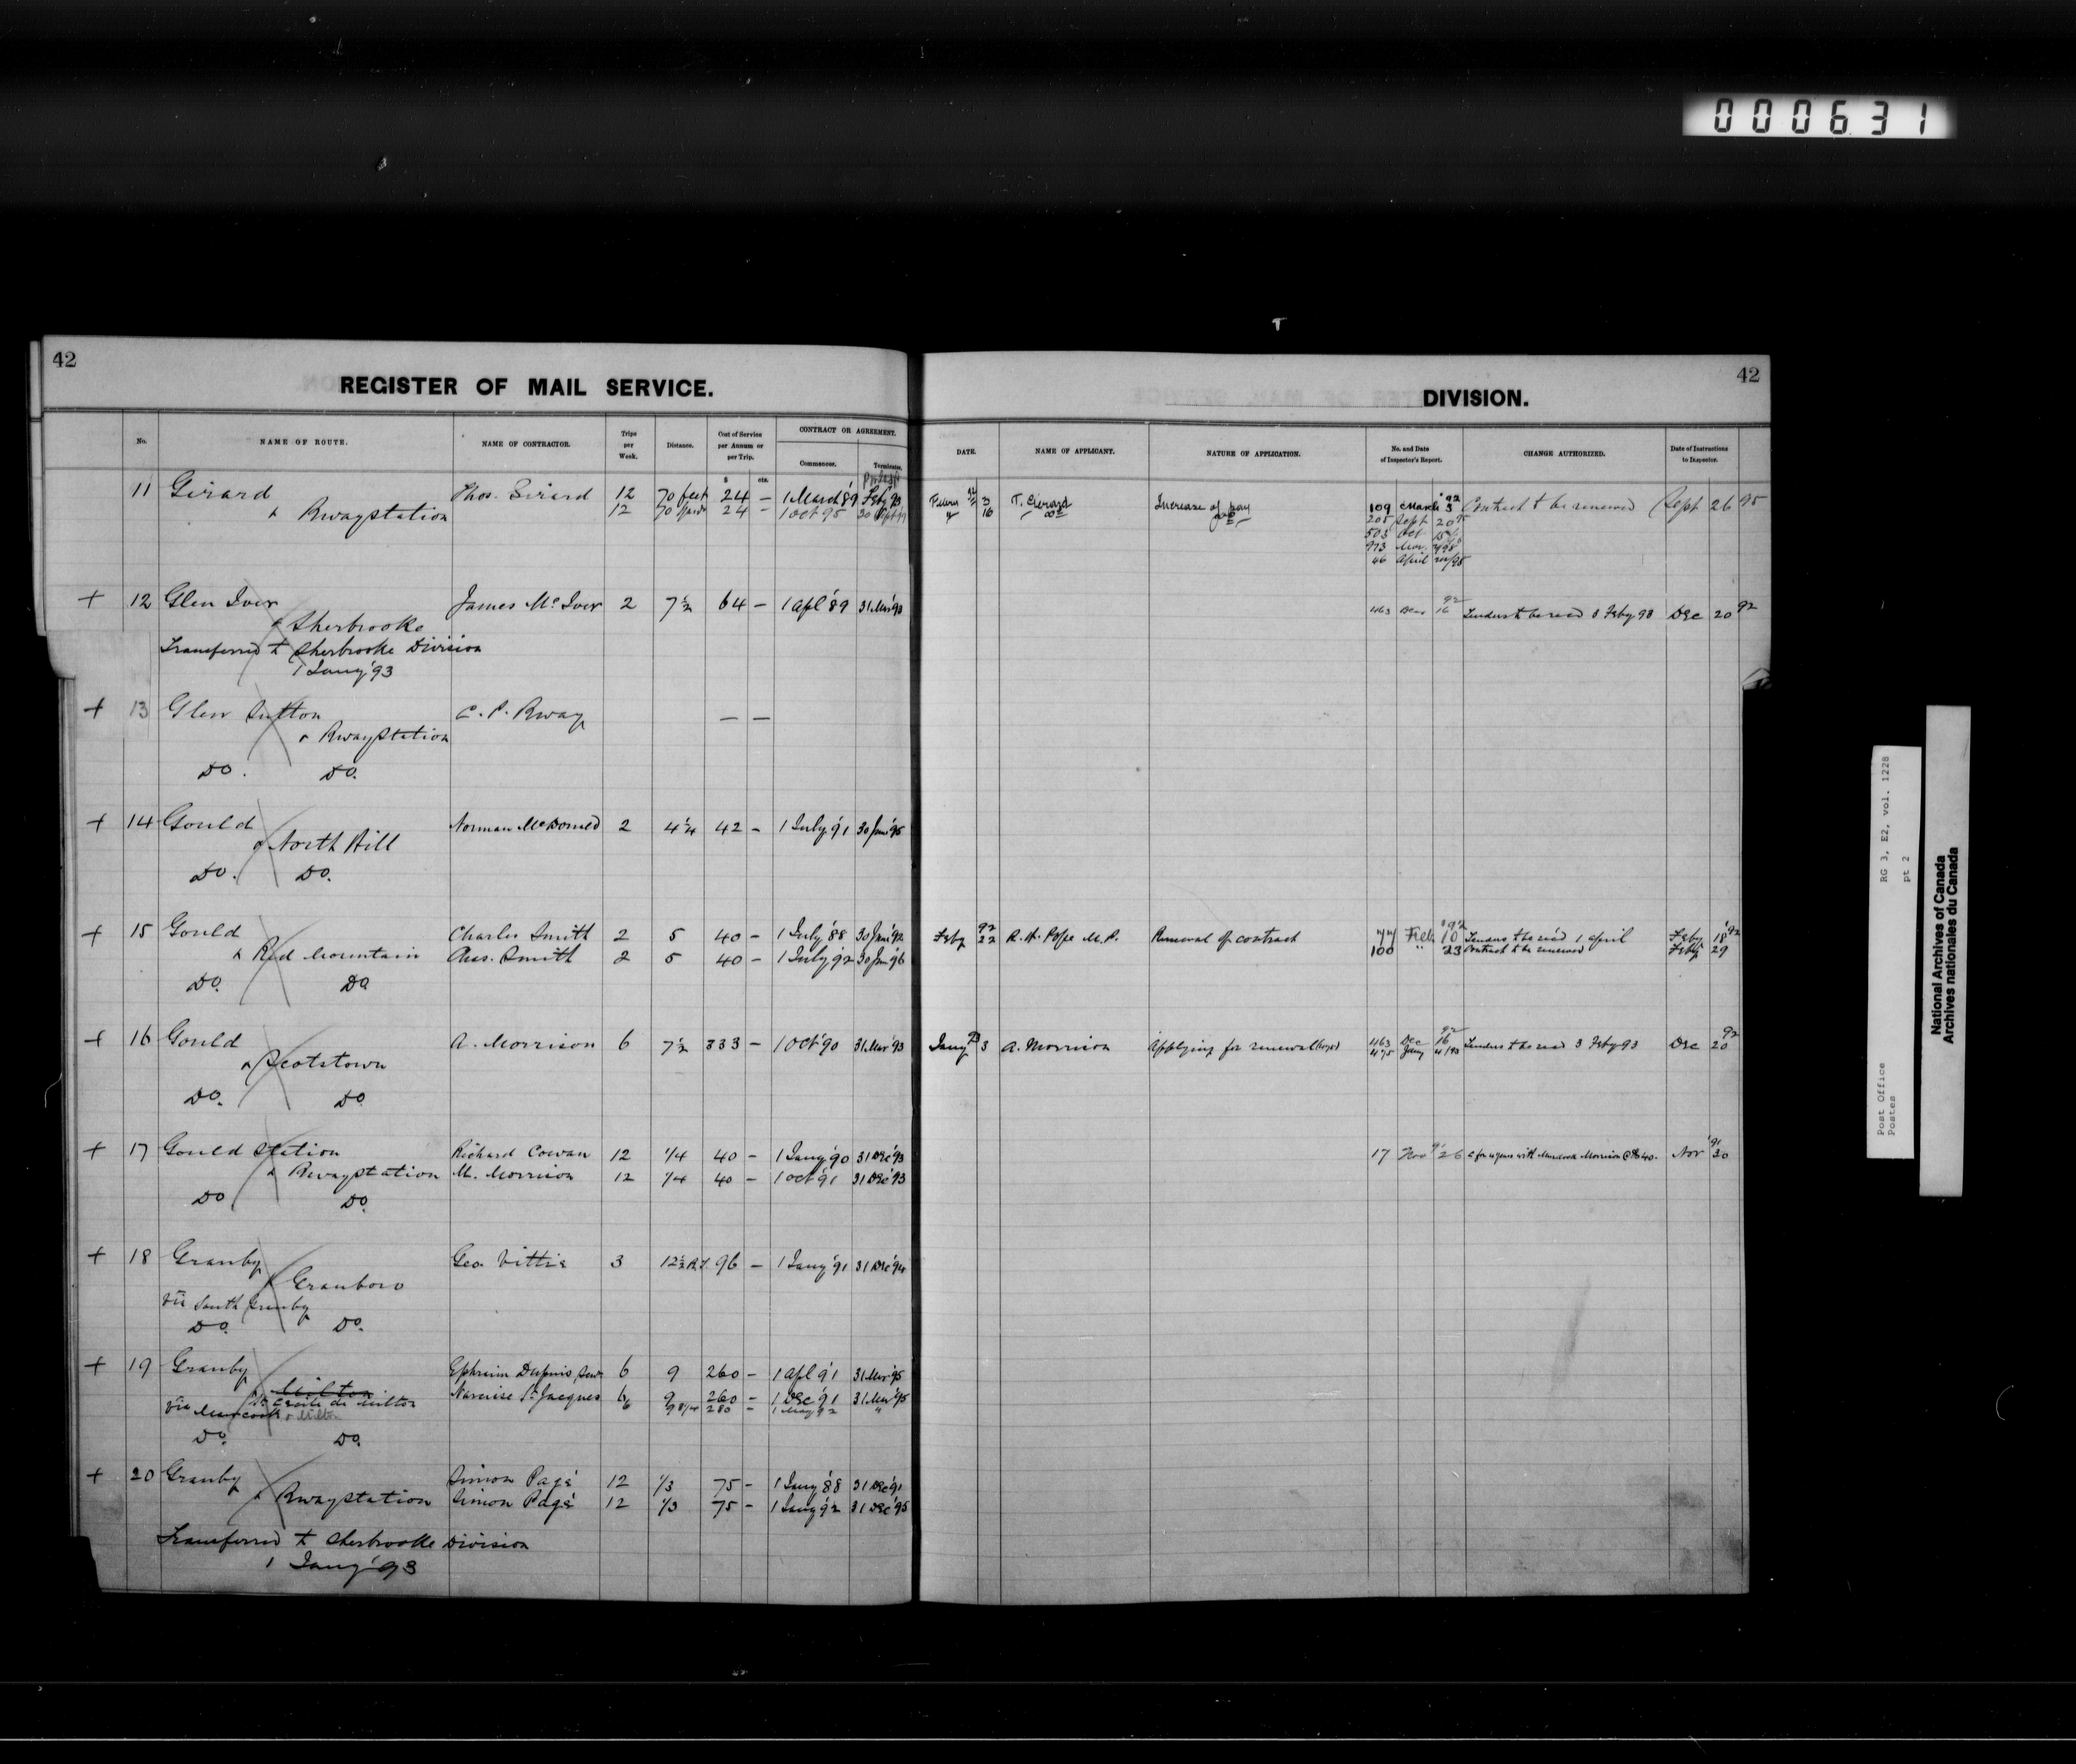 000631
42
REGISTER OF MAIL SERVICE.
No.
NAME OF ROUTE.
NAME OF CONTRACTOR.
Trips per Week.
Distance.
Cost of Service per Annum or per Trip.
$ cts.
CONTRACT OR AGREEMENT.
Commences.
Terminates.
11 Girard Thos. Girard 12 70 feet 24 — 1 March '89 Feby '93
& Rwaystation 12 70 24 — 1 Oct 95 30
+ 12 Glen Iver James McIver 2 7½ 64 — 1 Apl '89 31 Mar '93
& Sherbrooke
Transferred to Sherbrooke Division
1 Jany '93
+ 13 Glen Sutton C. P. Rway — —
& Rwaystation
Do. Do.
+ 14 Gould Norman McDonald 2 4¼ 42 - 1 July '91 30 June '95
& North Hill
Do. Do.
+ 15 Gould Charles Smith 2 5 40 - 1 July '88 30 June '92
& Red Mountain Chas. Smith 2 5 40 - 1 July '92 30 June '96
Do. Do
+ 16 Gould A. Morrison 6 7½ 333 - 1 Oct '90 31 Mar '93
& Scotstown
Do. Do
+ 17 Gould Station Richard Cowan 12 1/4 40 - 1 Jany '90 31 Dec '93
& Rwaystation M. Morrison 12 1/4 40 - 1 Oct '91 31 Dec '93
Do Do.
+ 18 Granby Geo. Vittie 3 12½ R.T. 96 — 1 Jany '91 31 Dec '94
& Granboro
via South Granby
Do. Do.
+ 19 Granby Ephraim Dupuis 6 9 260 - 1 Apl '91 31 Mar '95
& Milton
Ste Cecile de Milton Narcisse St Jacques 6 9 260 - 1 Dec '91 31 Mar '95
via & Milton 6 9 8/10 280 - 1 May 92 "
Do. Do.
+ 20 Granby Simon Pagé 12 1/3 75 - 1 Jany '88 31 Dec '91
& Rwaystation Simon Pagé 12 1/3 75 - 1 Jany '92 31 Dec '95
Transferred to Sherbrooke Division
1 Jany '93
42
DIVISION.
DATE.
NAME OF APPLICANT.
NATURE OF APPLICATION.
No. and Date of Inspector's Report.
CHANGE AUTHORIZED.
Date of Instructions to Inspector.
92 3 T. Girard Increase of pay 109 March 3 '92 Contract to be renewed Sept 26 95
" 16 do do 205 Sept 20
503 Oct
973
46 April
463 Dec 16 92 Tenders to be recd 3 Feby 93 Dec 20 92
Feby 22 92 R. H. Pope M.P. Renewal of contract 77 Feb 10 '92 Tenders to be rec'd 1 April Feby 18 '92
100 " 23 Contract to be renewed Feby 29
Jany 3 93 A. Morrison Applying for renewal 463 Dec 16 92 Tenders to be recd 3 Feby 93 Dec 20 92
475 Jany 4/93
17 Nov 26 91 c for 4 years with Murdock Morrison @ $40- Nov 30 '91
Post Office
Postes
RG 3, E2, vol. 1228
pt 2
National Archives of Canada
Archives nationales du Canada